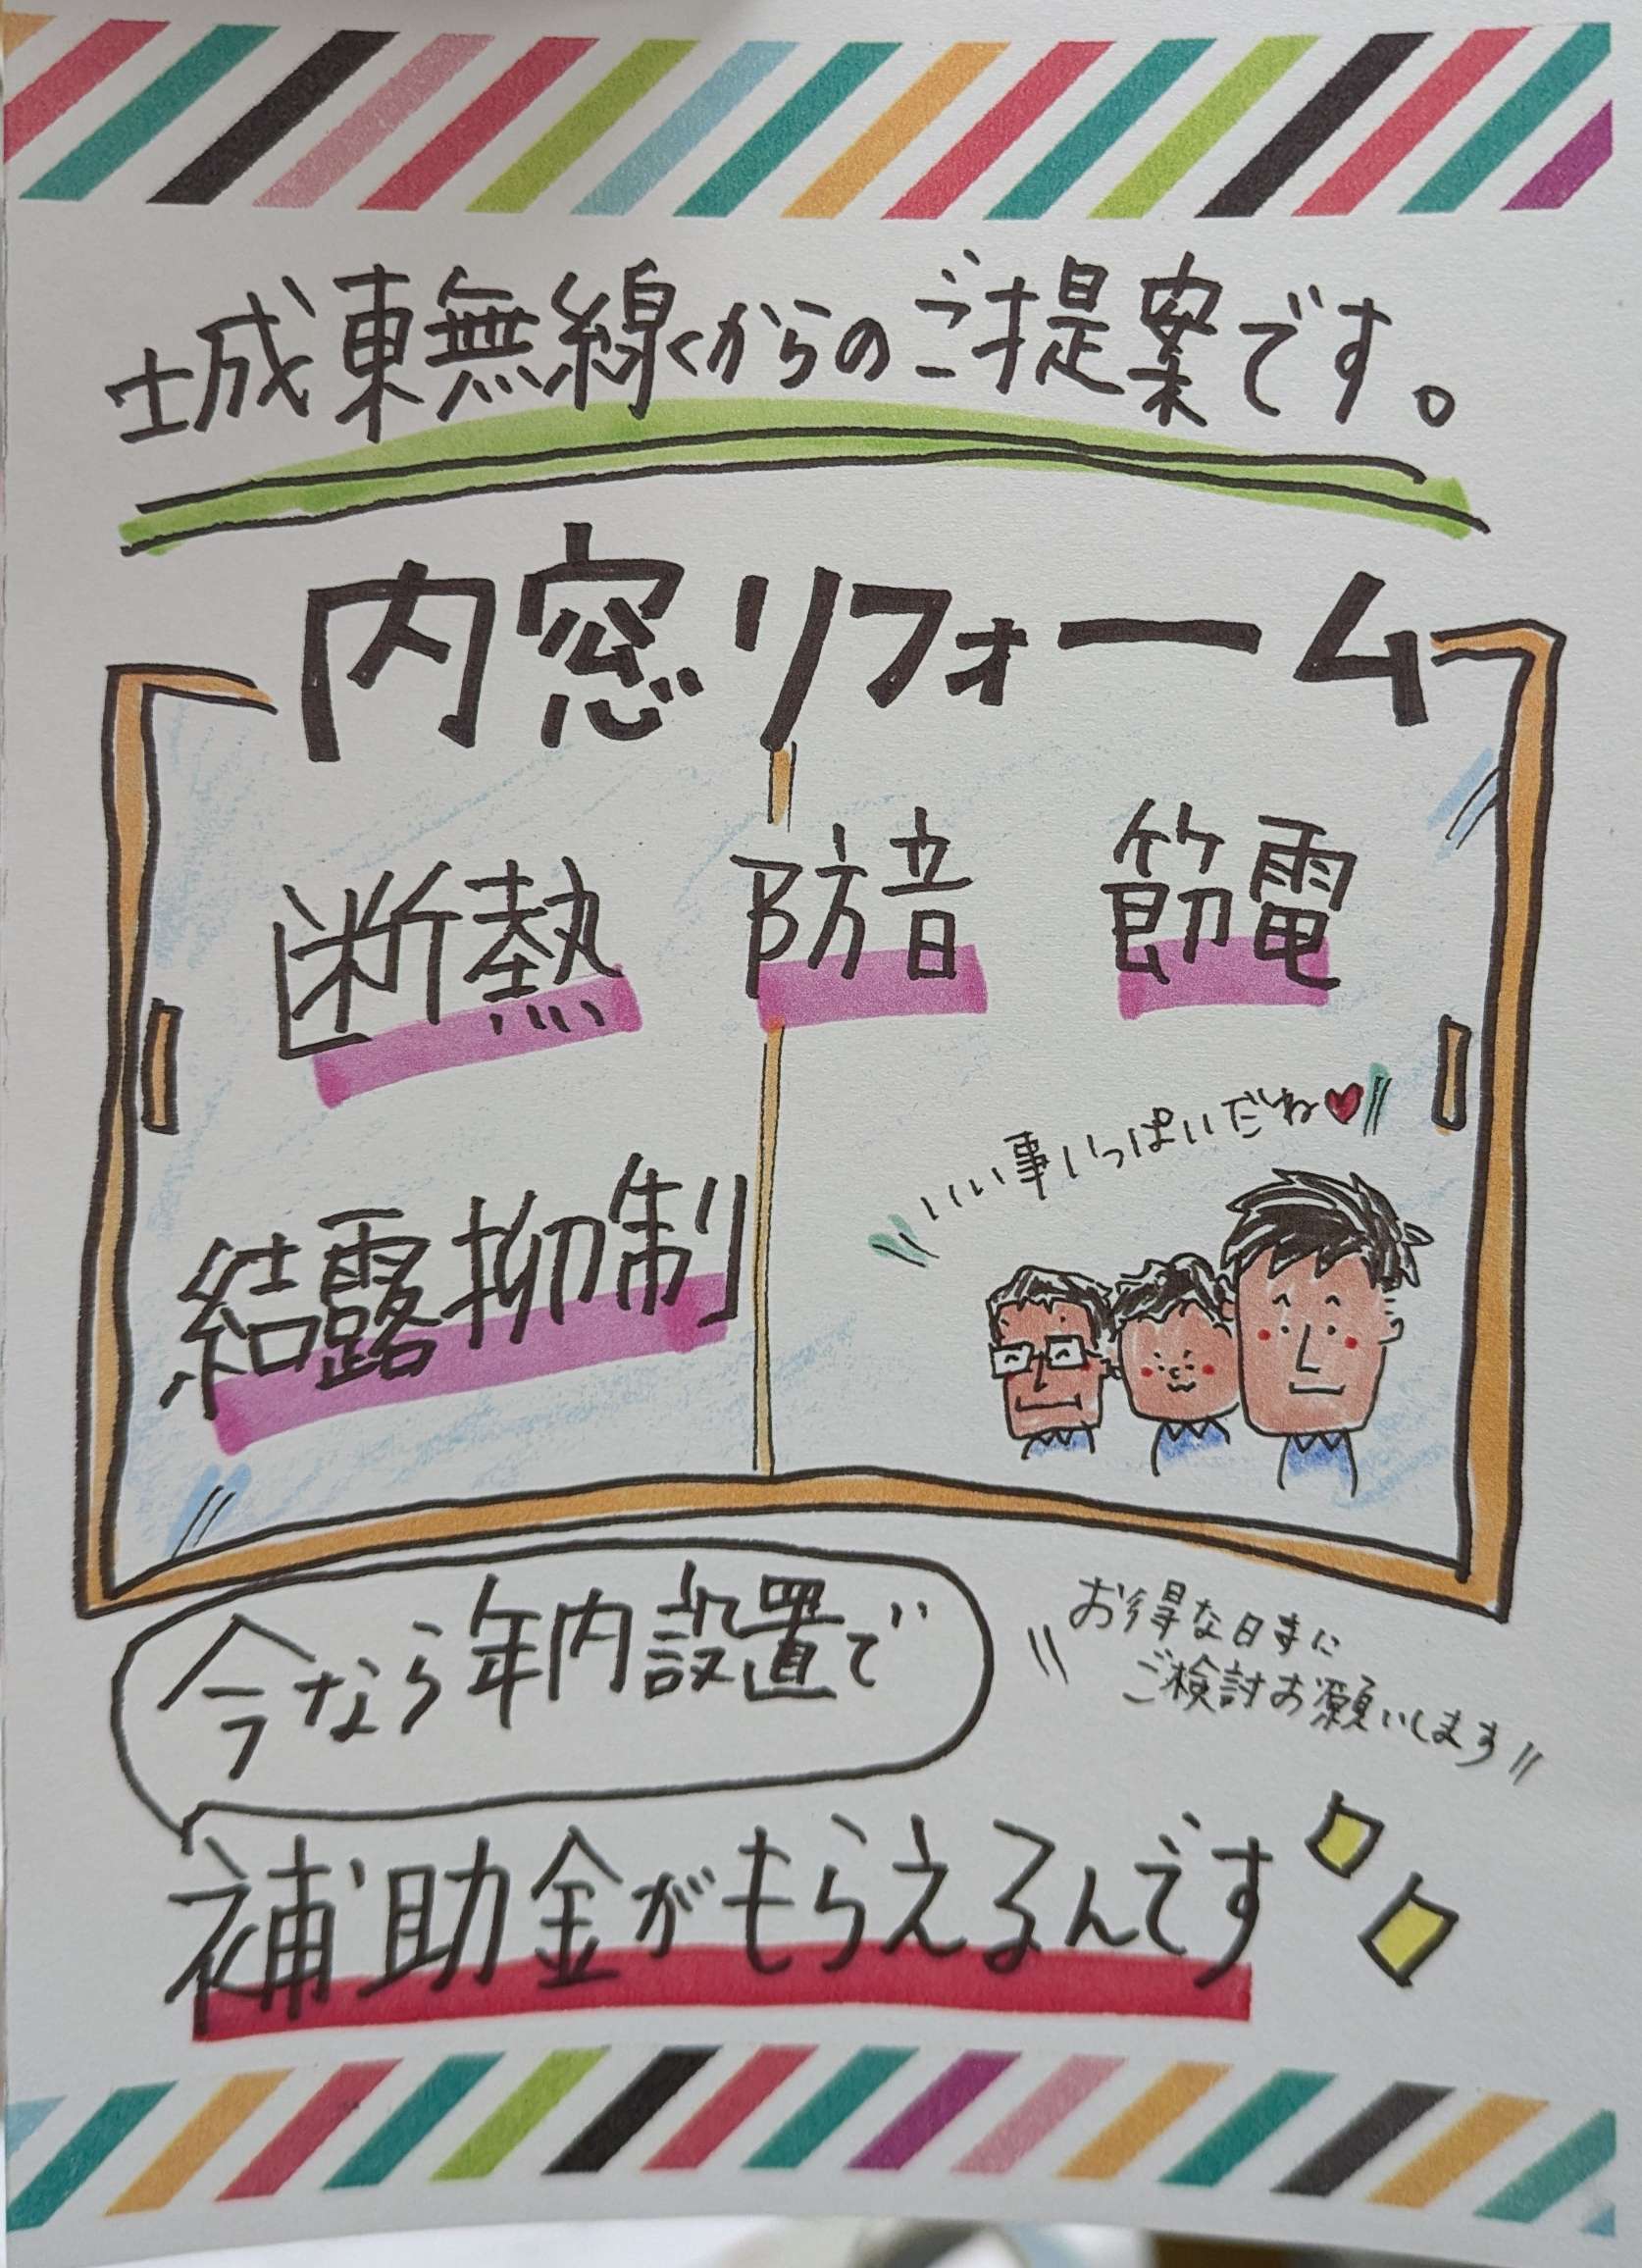 城東無線からのご提案です。
内窓リフォーム
断熱 防音 節電
いい事いっぱいだね♥
結露抑制
今なら年内設置で
お得な日まに
ご検討お願いします
補助金がもらえるんです